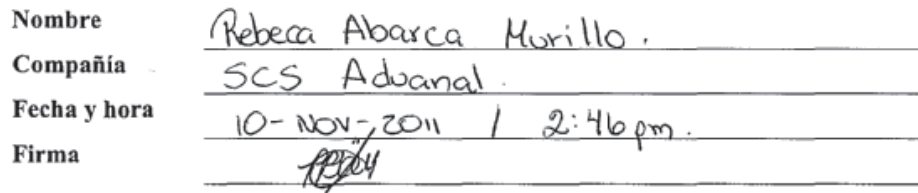 Nombre Rebeca Abarca Murillo.
Compañía SCS Aduanal.
Fecha y hora 10-NOV-2011 / 2:46 pm.
Firma